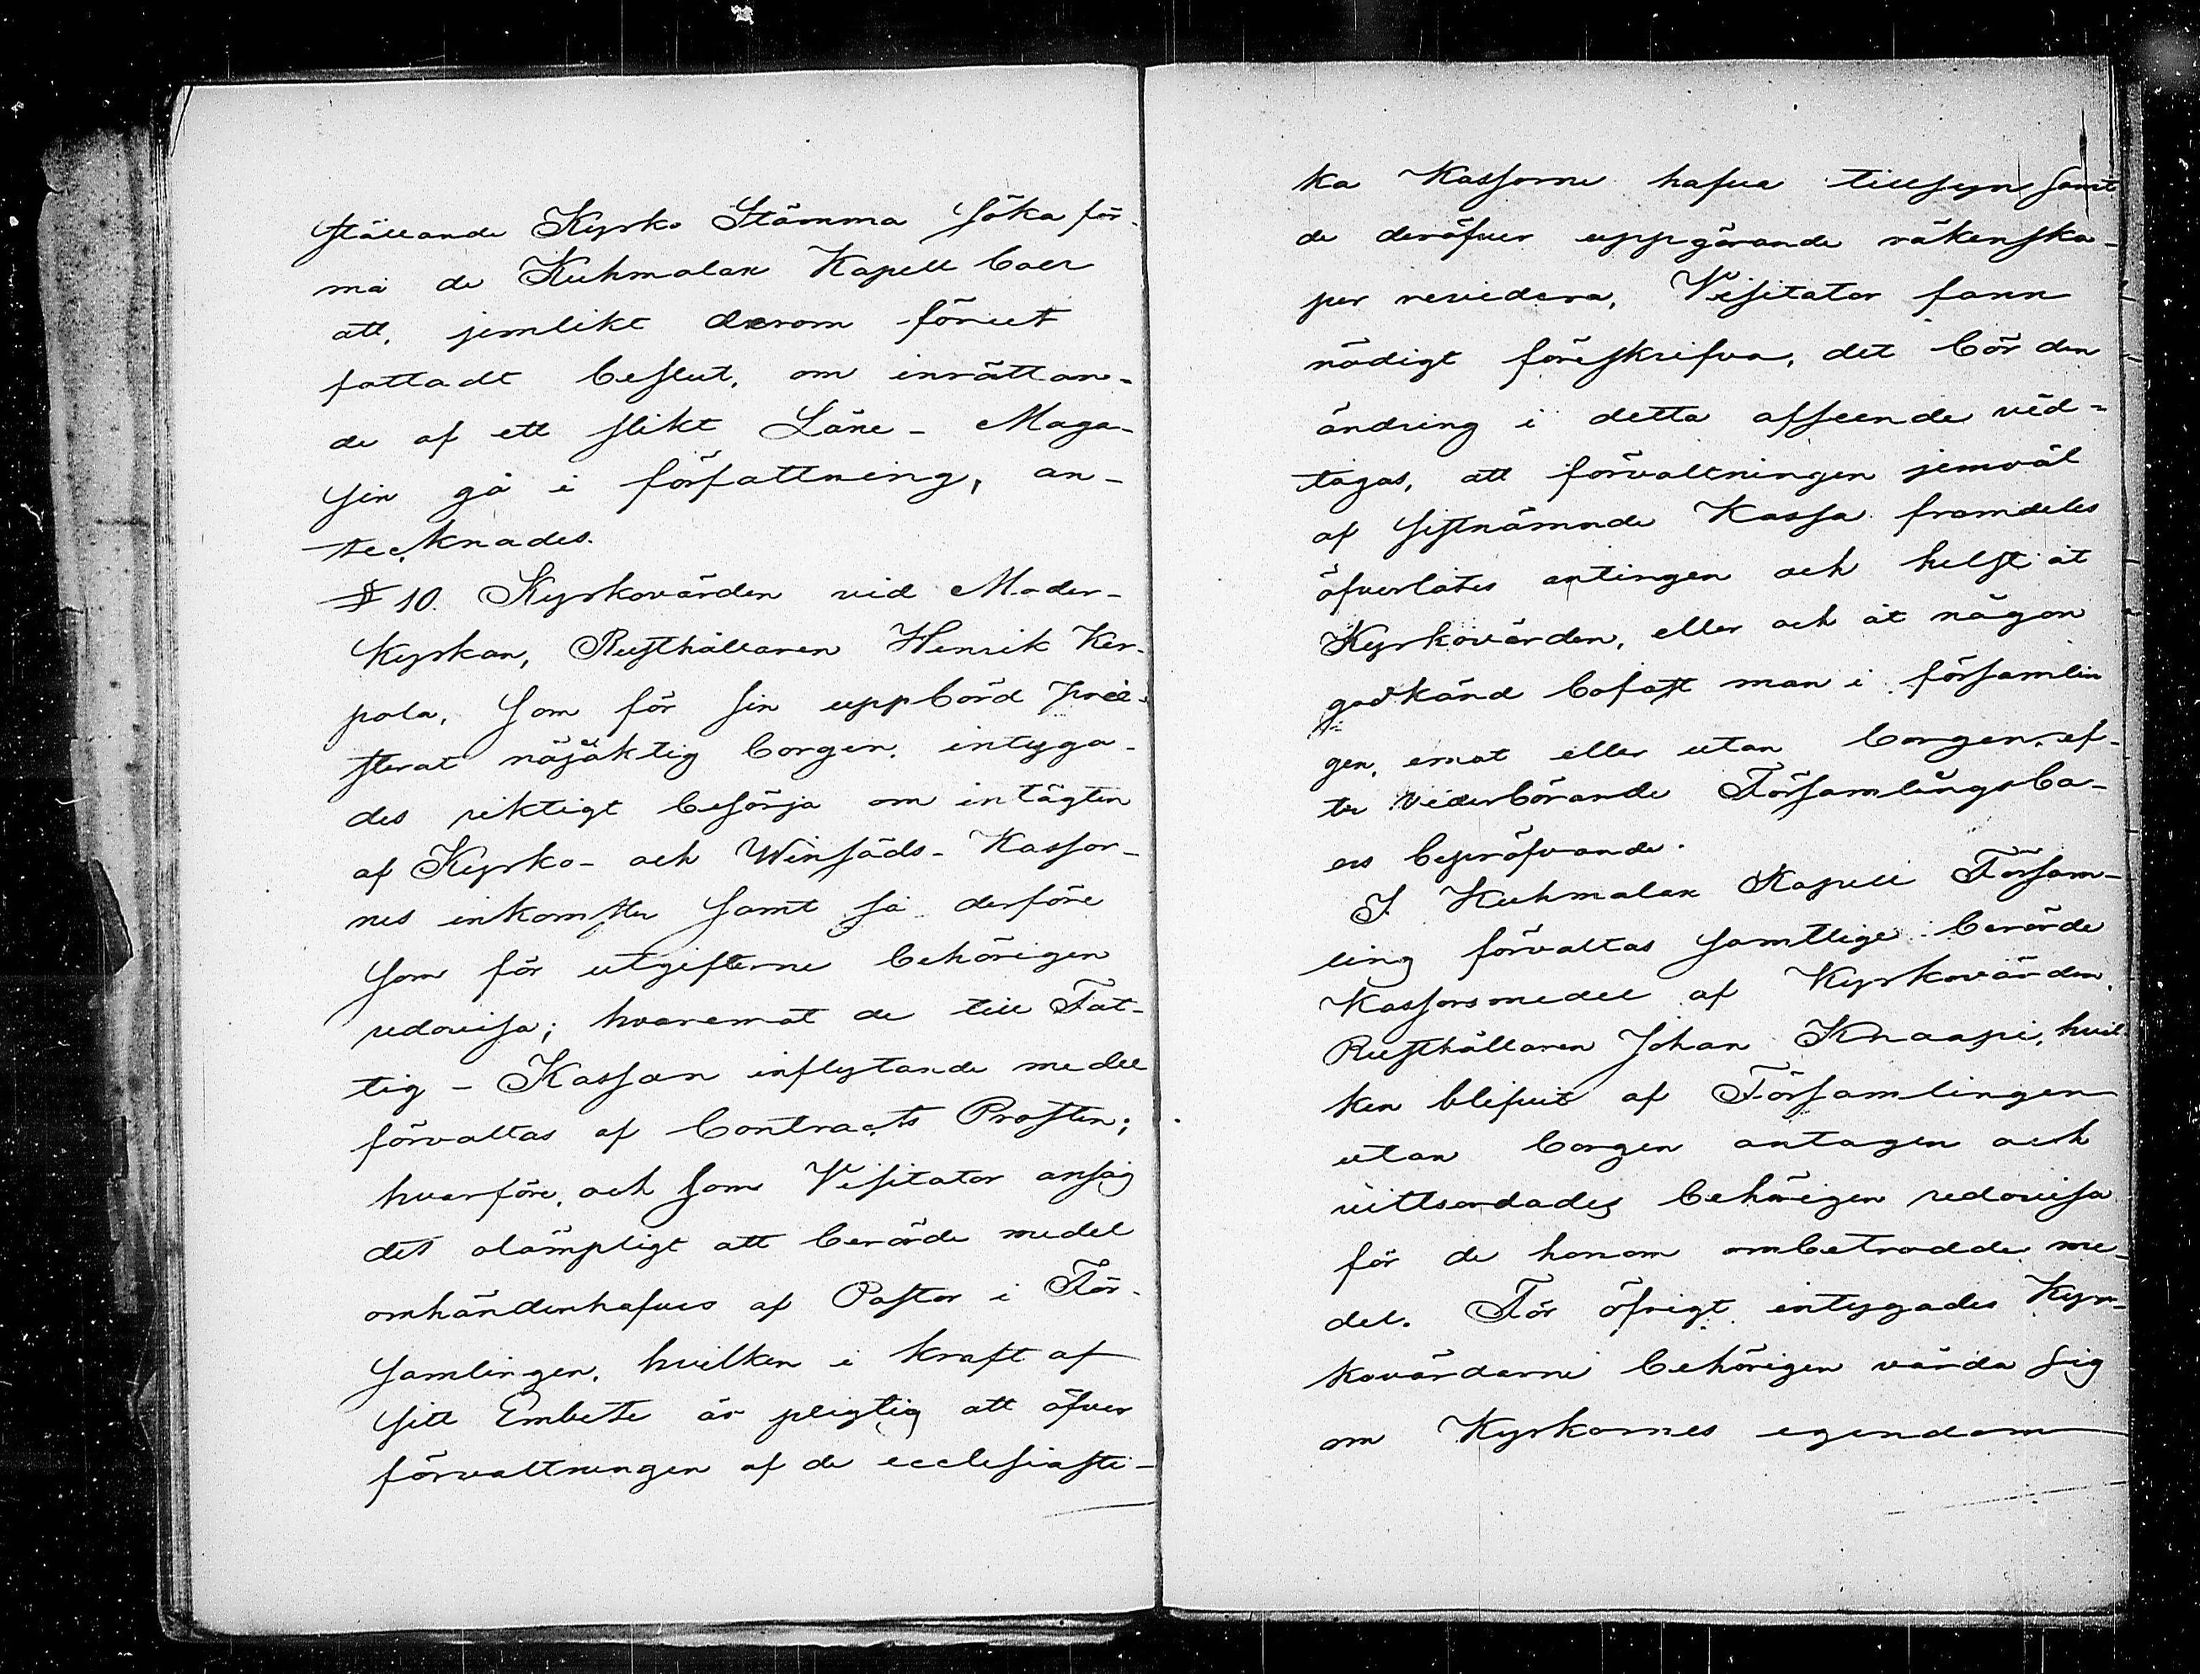 ställande Kyrko Stämma söka för-
må de Kuhmalax Kapell boer
att, jemlikt derom förut
fattadt beslut, om inrättan-
de af ett slikt Låne- Maga-
sin gå i författning, an-
tecknades.
§ 10. Kyrkovärden vid Moder-
kyrkan, Rusthållaren Henrik Ker-
pola, som för sin uppbörd præ-
sterat nöjaktig borgen, intyga-
des riktigt besörja om intägten
af Kyrko- och Winsäds- Kassor-
nes inkomster samt så derföre
som för utgifterne behörigen
redovisa; hvaremot de till Fat-
tig- Kassan inflytande medel
förvaltas af Contracts Prosten;
hvarföre, och som Visitator ansåg
det olämpligt att berörde medel
omhänderhafves af Pastor i För-
samlingen, hvilken i kraft af
sitt Embete är pligtig att öfver
förvaltningen af de ecclesiasti-
ka Kassorne hafva tillsyn samt
de deröfver uppgörande räkenska-
per revidera, Visitator fann
nödigt föreskrifva, det bör den
ändring i detta afseende vid-
tagas, att förvaltningen jemväl
af sistnämnde Kassa framdeles
öfverlåtes antingen och helst åt
Kyrkovärden, eller och åt någon
godkänd bofast man i församlin
gen, emot eller utan borgen, ef-
ter vederbörande Församlingsbo-
ers bepröfvande.
I Kuhmalax Kapell Försam-
ling förvaltas samtlige berörde
Kassors medel af Kyrkovärden,
Rusthållaren Johan Knaapi, hvil-
ken blifvit af Församlingen
utan borgen antagen och
vittsordades behörigen redovisa
för de honom ombetrodde me-
del. För öfrigt intygades Kyr-
kovärderne behörigen vårda sig
om Kyrkornes egendom